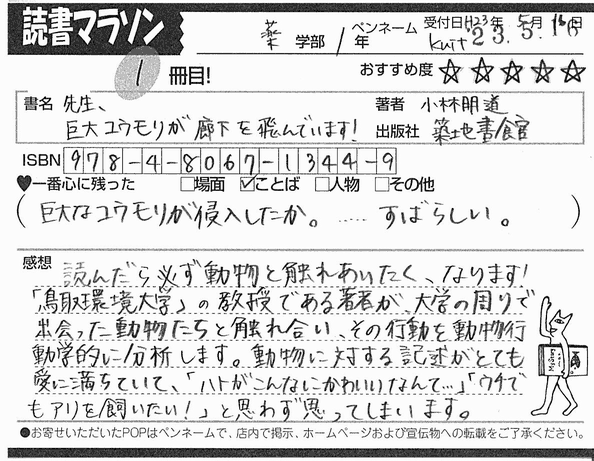 読書マラソン
薬 学部 1 年 ペンネーム kuit 受付日 H23年 5月 16日
23.5.16
1 冊目! おすすめ度 ☆☆☆☆☆
書名 先生、 著者 小林朋道
巨大コウモリが廊下を飛んでいます! 出版社 築地書館
ISBN 978-4-8067-1344-9
♥一番心に残った □場面 ☑ことば □人物 □その他
(巨大なコウモリが侵入したか。…… すばらしい。)
感想
読んだら必ず動物と触れあいたく、なります!
「鳥取環境大学」の教授である著者が、大学の周りで
出会った動物たちと触れ合い、その行動を動物行
動学的に分析します。動物に対する記述がとても
愛に満ちていて、「ハトがこんなにかわいいなんて…」「ウチで
もアリを飼いたい!」と思わず思ってしまいます。
●お寄せいただいたPOPはペンネームで、店内で掲示、ホームページおよび宣伝物への転載をご了承ください。